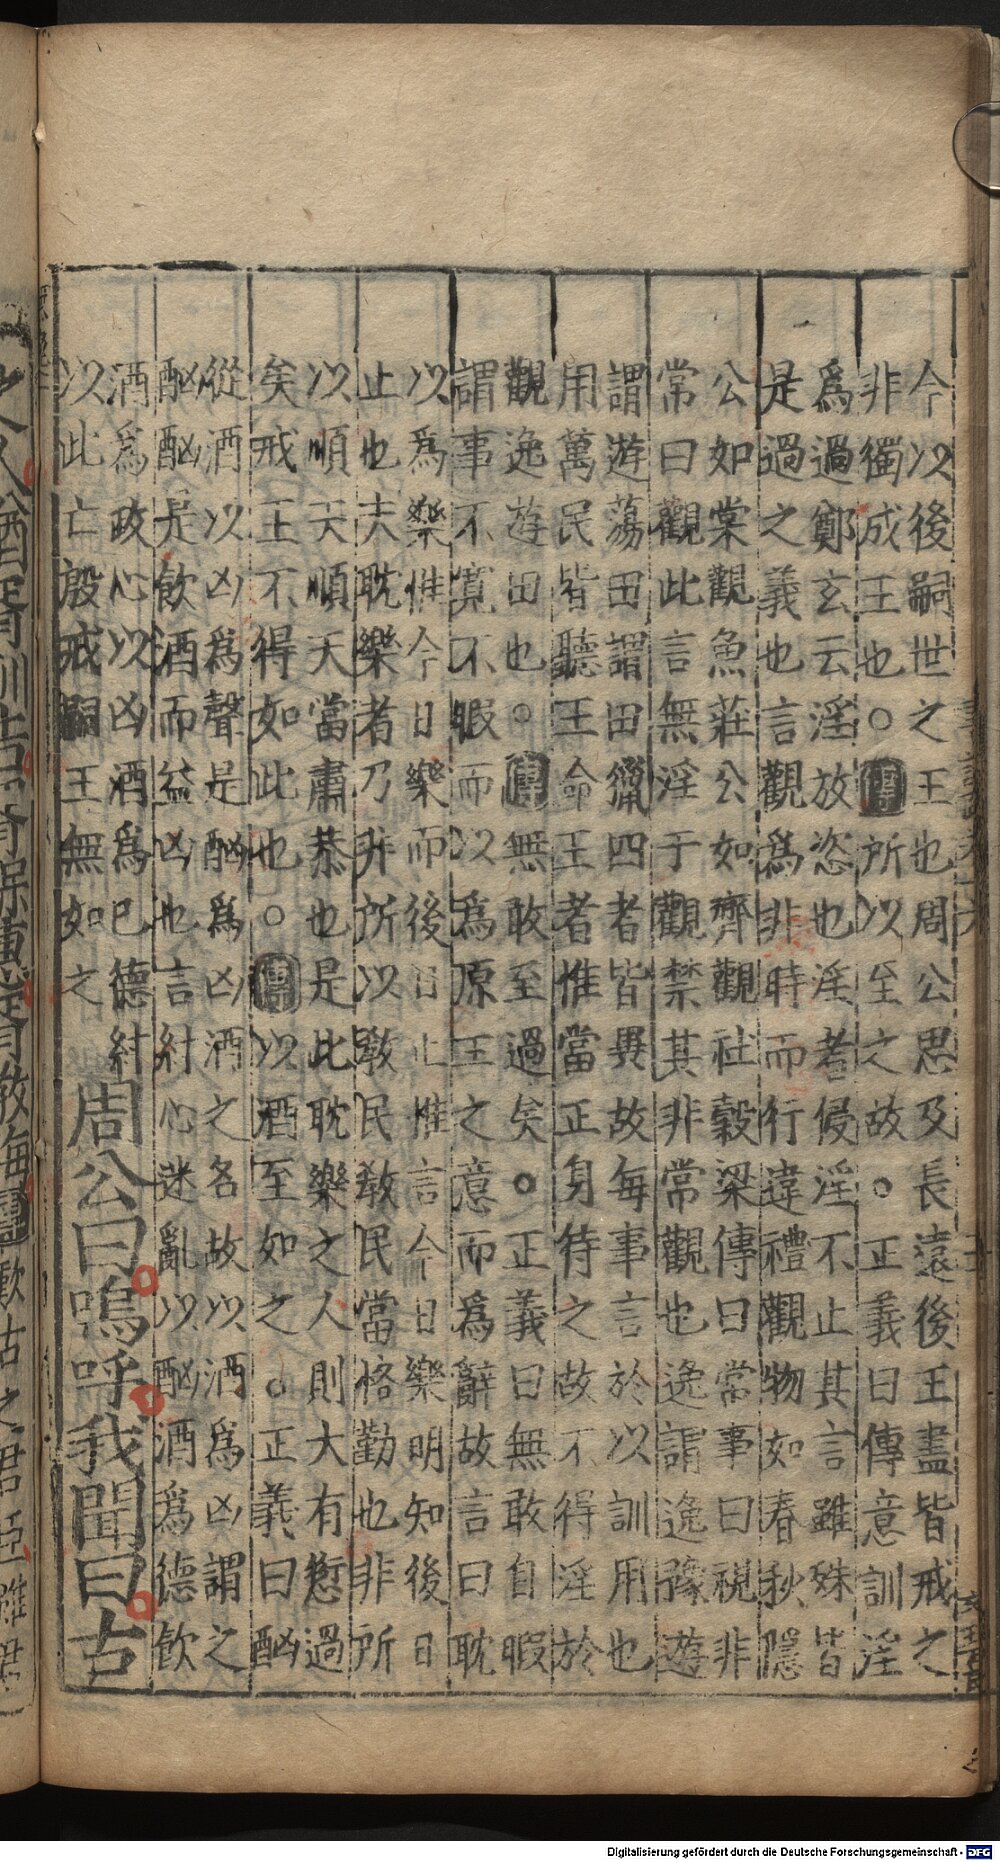 今以後嗣世之王也周公思及長遠後王盡皆戒之
非獨成王也○傳所以至之故○正義曰傳意訓淫
爲過鄭玄云淫放恣也淫者侵淫不止其言雖殊皆
是過之義也言觀爲非時而行違禮觀物如春秋隱
公如棠觀魚莊公如齊觀社穀梁傳曰常事曰視非
常曰觀此言無淫于觀禁其非常觀也逸謂逸豫遊
謂遊蕩田謂田獵四者皆異故每事言於以訓用也
用萬民皆聽王命王者惟當正身待之故不得淫於
觀逸遊田也○傳無敢至過矣○正義曰無敢自暇
謂事不寬不暇而以爲原王之意而爲辭故言曰耽
以爲樂惟今日樂而後日止惟言今日樂明知後日
止也夫耽樂者乃非所以敎民敎民當恪勤也非所
以順天順天當肅恭也是此耽樂之人則大有愆過
矣戒王不得如此也○傳以酒至如之○正義曰酗
從酒以凶爲聲是酗爲凶酒之名故以酒爲凶謂之
酗酗是飲酒而益凶也言紂心迷亂以酗酒爲德飲
酒爲政心以凶酒爲己德紂
以此亡殷戒嗣王無如之
周公曰嗚呼我聞曰古
Digitalisierung gefördert durch die Deutsche Forschungsgemeinschaft - DFG